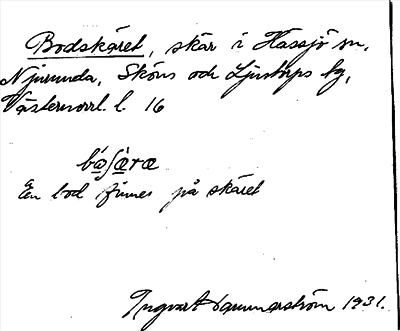 Bodskäret, skär i Hässjö sn,
Njurunda, Sköns och Ljustorps tg,
Västernorrl. l. 16
En bod finnes på skäret
Ingvart Gunnarström 1931.